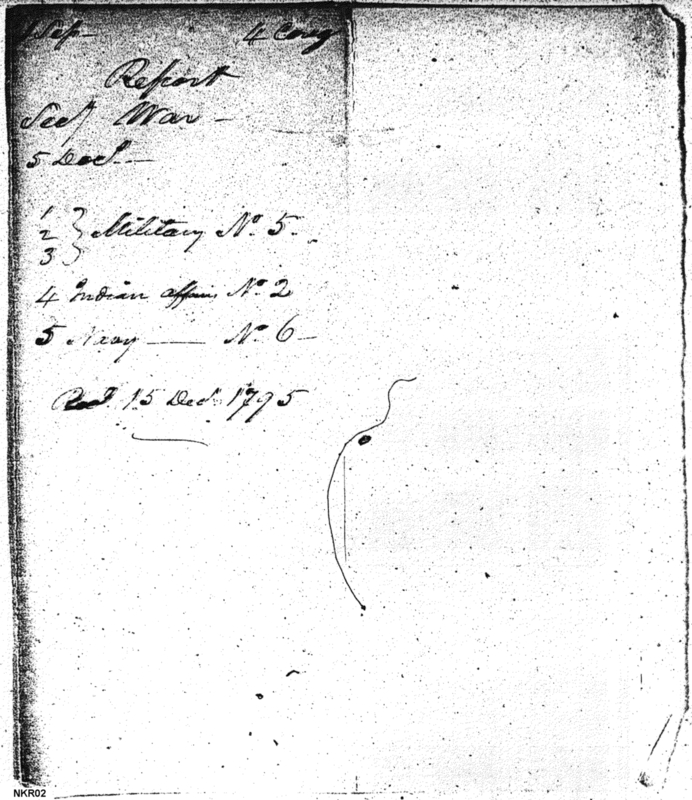 1 Sep— 4 Cong
Report
Secy War —
5 Decr. —
1
2 } Military No. 5 -
3
4 Indian affairs No. 2
5 Navy —— No. 6 —
Recd. 15 Decr. 1795
NKR02